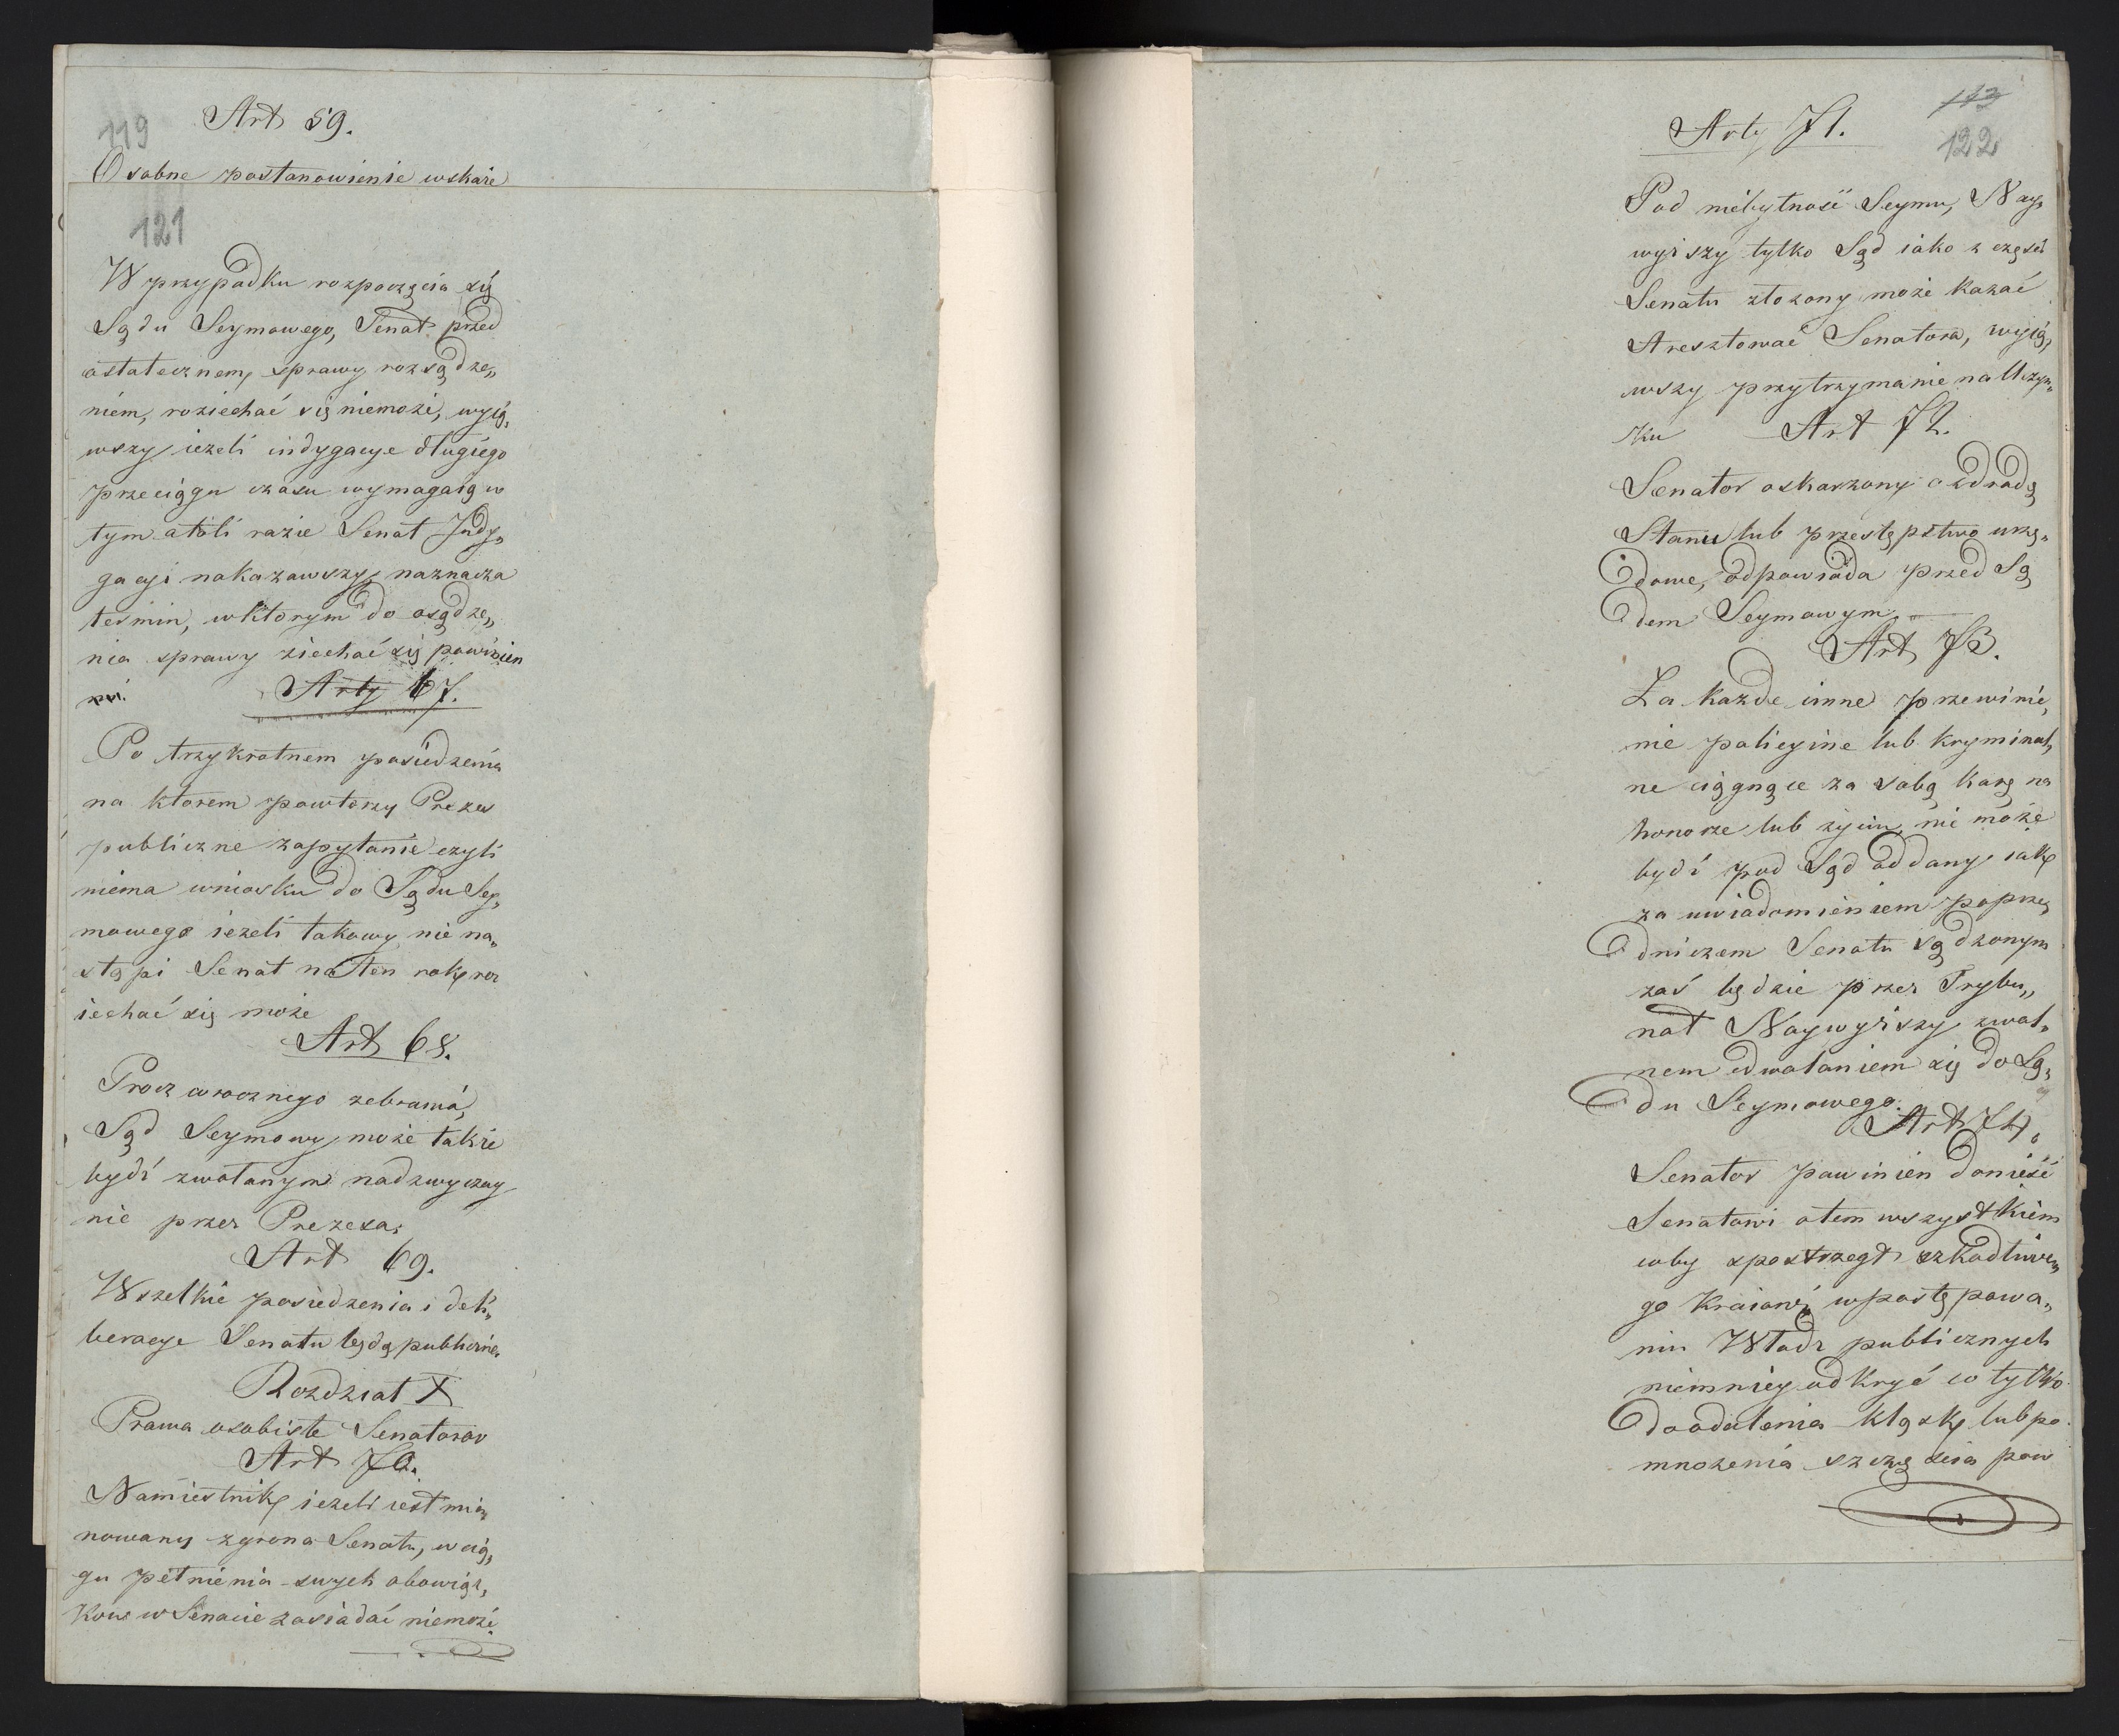 119
Art 59.
Osobne postanowienie wskaże
121
W przypadku rozpoczęcia się
Sądu Seymowego, Senat przed
ostatecznem, sprawy rozsądze„
niem, roziechać się niemoże, wyią„
wszy ieżeli indygacye długiego
przeciągu czasu wymagaią w
tym atoli razie Senat Indy„
gacyi nakazawszy, naznacza
termin, w ktorym do osądze„
nia sprawy ziechać się powinien
Arty 67.
Po trzykrotnem posiedzenia
na ktorem powtorzy Prezes
publiczne zapytanie czyli
niema wniosku do Sądu Sey„
mowego ieżeli takowy nie na„
stąpi Senat na ten rok roz
iechać się może
Art 68.
Procz corocznego zebrania,
Sąd Seymowy może także
bydź zwołanym nadzwyczay
nie przez Prezesa.
Art 69.
Wszelkie posiedzenia i deli„
beracye Senatu będą publiczne.
Rozdział X
Prawa osobiste Senatorow
Art 70.
Namiestnik ieżeli iest mia„
nowany z grona Senatu, w cią„
gu pełnienia swych obowiąz„
kow w Senacie zasiadać niemoże.
113
122
Arty 71.
Pod niebytność Seymu, Nay„
wyższy tylko Sąd iako z części
Senatu złożony może kazać
Aresztować Senatora, wyią„
wszy przytrzymanie na Uczyn„
ku
Art 72.
Senator oskarzony o zdradę
Stanu lub przestępstwo urzę„
dowe, odpowiada przed Są
dem Seymowym
Art 73.
Za każde inne przewinie„
nie policyine lub kryminal„
ne ciągnące za sobą karę na
honorze lub życiu, nie może
bydź pod Sąd oddany iak
za uwiadomieniem poprze„
dniczem Senatu sądzonym
zaś będzie przez Trybu„
nał Naywyższy z wol„
nem odwołaniem się do Są„
du Seymowego.
Art 74.
Senator powinien donieść
Senatowi o tem wszystkiem
coby spostrzegł szkodliwe„
go Kraiowi w postępowa„
niu Władz publicznych
niemniey odkryć co tylko
do oddalenia klęsk lub po
mnożenia szczęścia pow